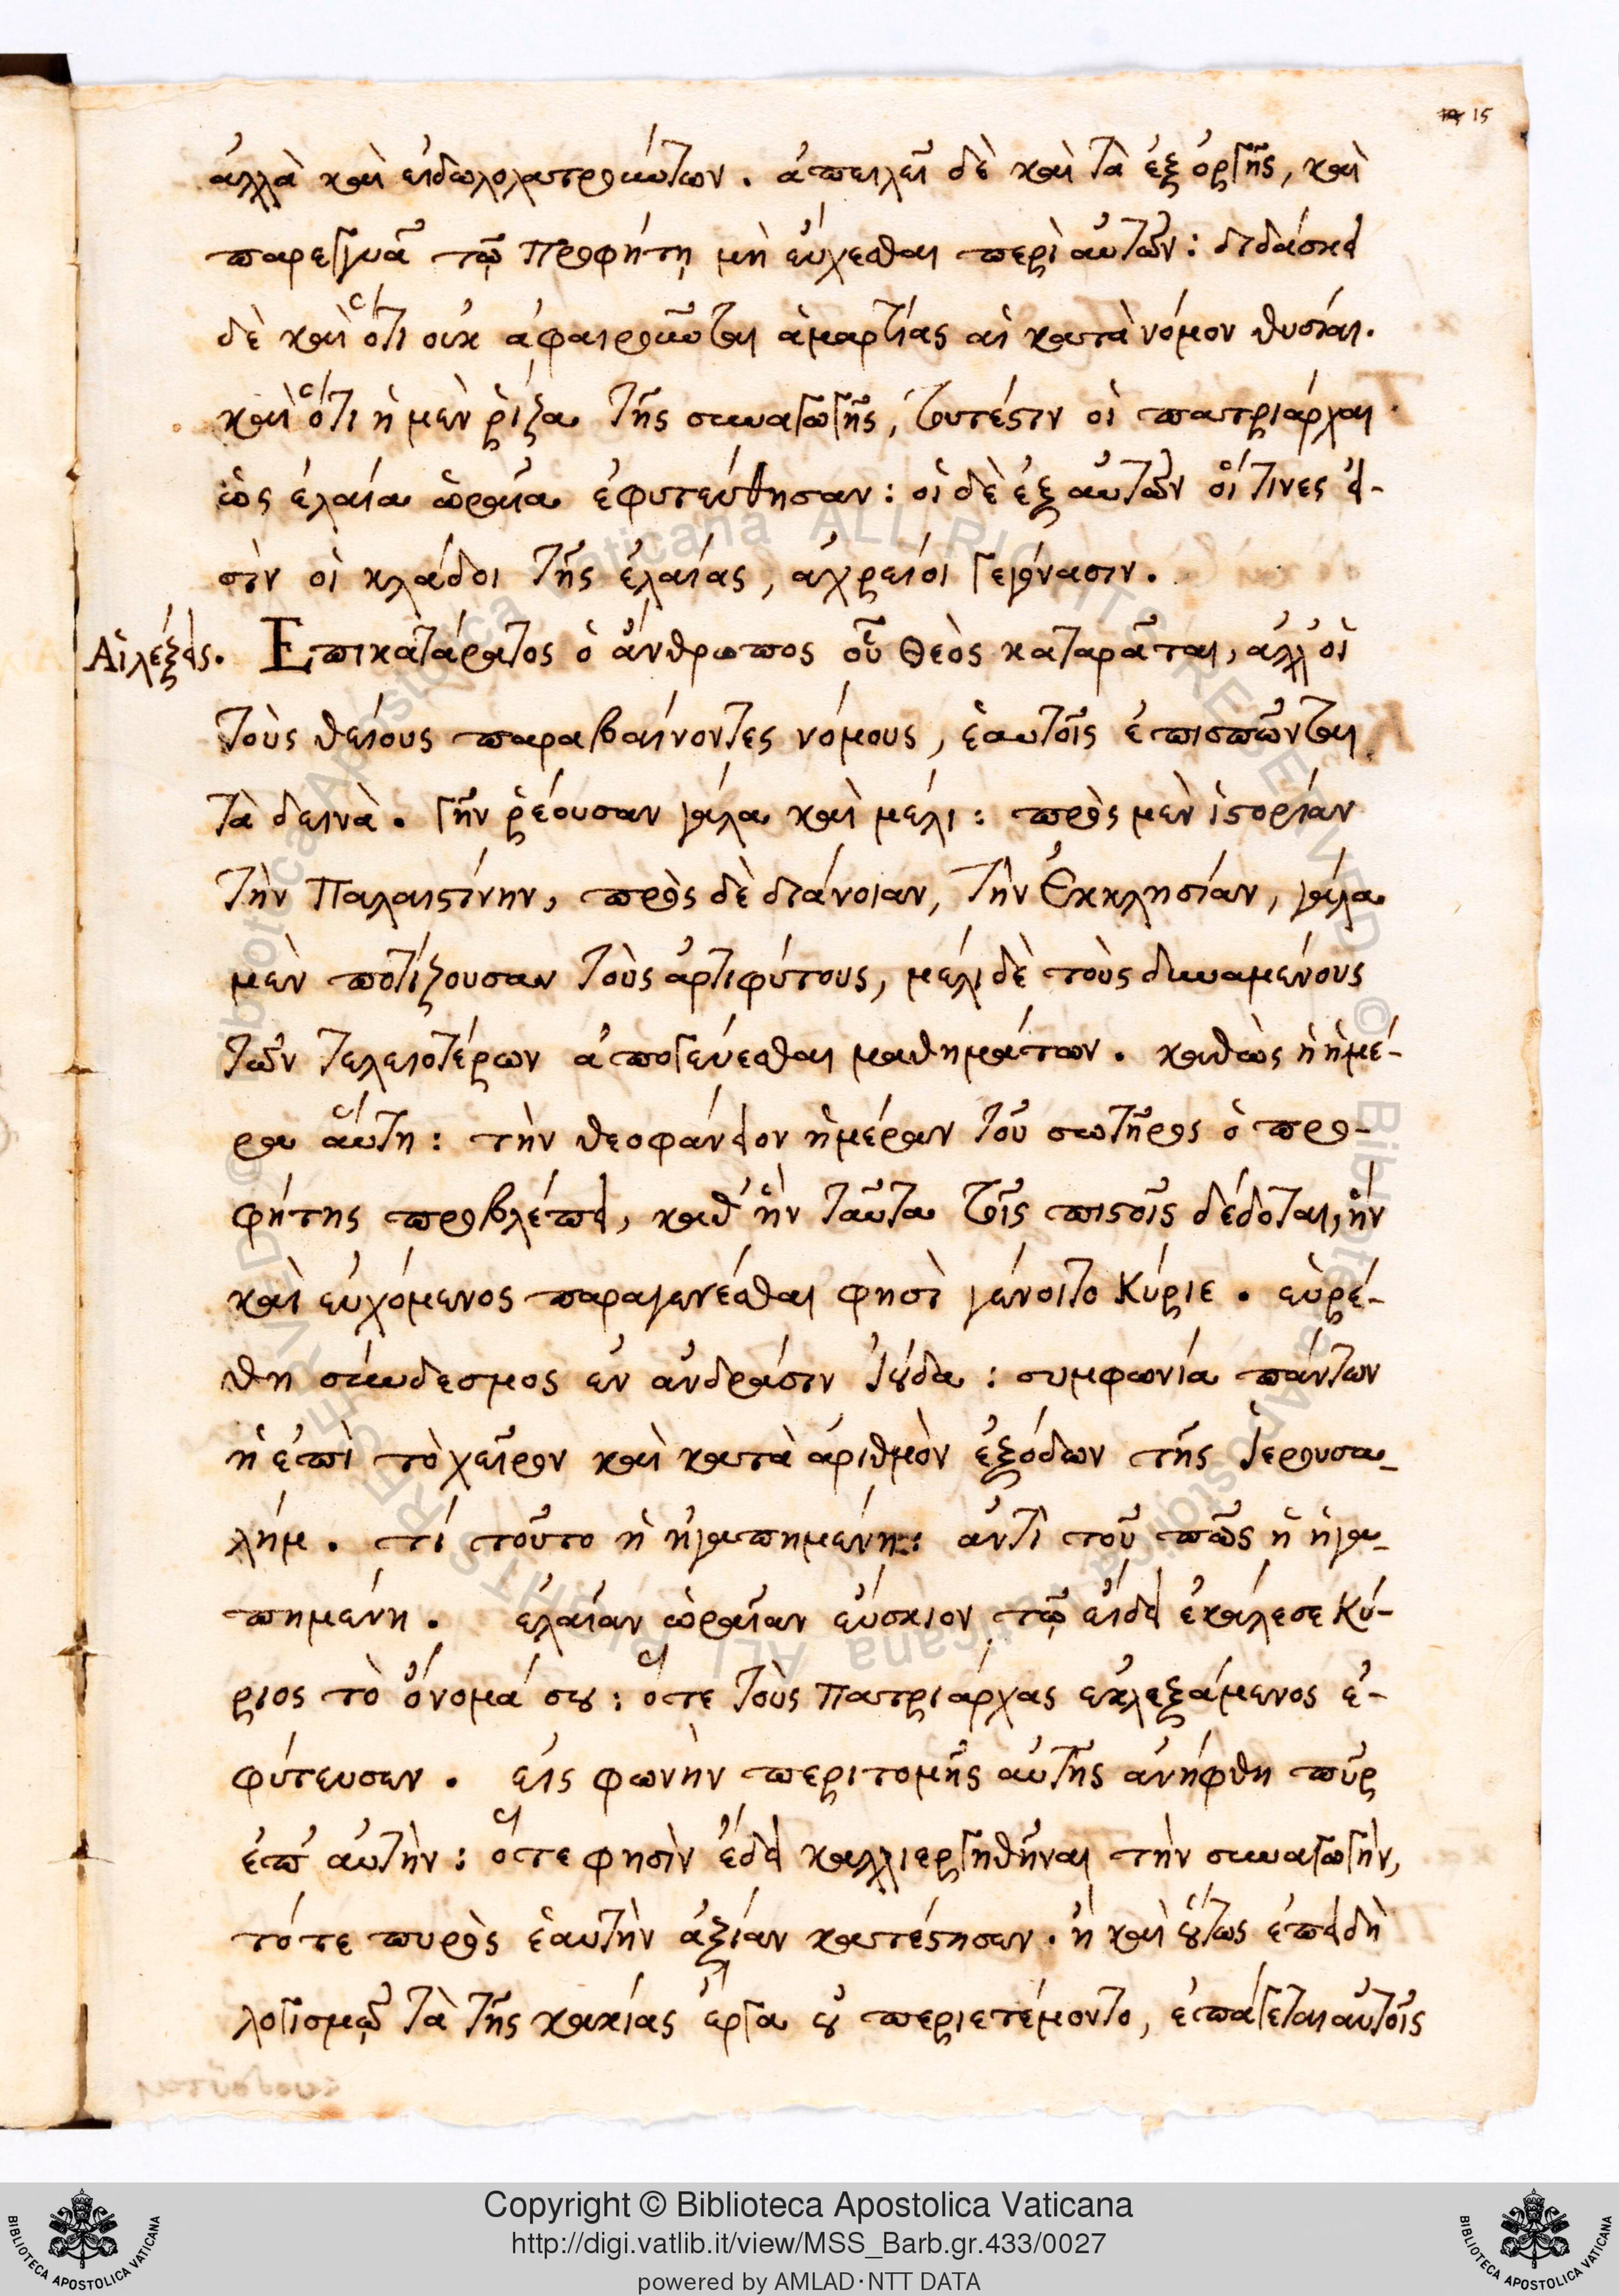 15
ἀλλὰ καὶ εἰδωλολατρούντων. ἀπειλεῖ δὲ καὶ τὰ ἐξ ὀργῆς, καὶ
παρεγγυᾷ τῷ Προφήτῃ μὴ εὔχεσθαι περὶ αὐτῶν: διδάσκει
δὲ καὶ ὅτι οὐκ ἀφαιροῦνται ἁμαρτίας αἱ κατὰ νόμον θυσίαι.
καὶ ὅτι ἡ μὲν ῥίζα τῆς συναγωγῆς, τουτέστιν οἱ πατριάρχαι
ὡς ἐλαία ὡραία ἐφυτεύθησαν: οἱ δὲ ἐξ αὐτῶν οἵτινες εἰ-
σὶν οἱ κλάδοι τῆς ἐλαίας, ἀχρεῖοι γεγόνασιν.
Αἱ λέξεις. Ἐπικατάρατος ὁ ἄνθρωπος οὗ Θεὸς καταρᾶται, ἀλλ' οἱ
τοὺς θείους παραβαίνοντες νόμους, ἑαυτοῖς ἐπισπῶνται
τὰ δεινὰ. γῆν ῥέουσαν γάλα καὶ μέλι: πρὸς μὲν ἱστορίαν
τὴν Παλαιστίνην, πρὸς δὲ διάνοιαν, τὴν Ἐκκλησίαν, γάλα
μὲν ποτίζουσαν τοὺς ἀρτιφύτους, μέλι δὲ τοὺς δυναμένους
τῶν τελειοτέρων ἀπογεύεσθαι μαθημάτων. καθὼς ἡ ἡμέ-
ρα αὕτη: τὴν θεοφάνειον ἡμέραν τοῦ σωτῆρος ὁ προ-
φήτης προβλέπει, καθ' ἣν ταῦτα τοῖς πιστοῖς δέδοται, ἣν
καὶ εὐχόμενος παραγενέσθαι φησὶ γένοιτο Κύριε. εὑρέ-
θη σύνδεσμος ἐν ἀνδράσιν Ἰούδα: συμφωνία πάντων
ἡ ἐπὶ τὸ χεῖρον καὶ κατὰ ἀριθμὸν ἐξόδων τῆς Ἱερουσα-
λήμ. τί τοῦτο ἡ ἠγαπημένη: ἀντὶ τοῦ πῶς ἡ ἠγα-
πημένη. ἐλαίαν ὡραίαν εὔσκιον τῷ εἴδει ἐκάλεσε Κύ-
ριος τὸ ὄνομά σου: ὅτε τοὺς Πατριάρχας ἐκλεξάμενος ἐ-
φύτευσεν. εἰς φωνὴν περιτομῆς αὐτῆς ἀνήφθη πῦρ
ἐπ' αὐτὴν: ὅτε φησὶν ἔδει καλλιεργηθῆναι τὴν συναγωγὴν,
τότε πυρὸς ἑαυτὴν ἀξίαν κατέστησεν. ἢ καὶ οὕτως ἐπειδὴ
λογισμῷ τὰ τῆς κακίας ἔργα οὐ περιετέμοντο, ἐπάγεται αὐτοῖς
Copyright © Biblioteca Apostolica Vaticana
http://digi.vatlib.it/view/MSS_Barb.gr.433/0027
powered by AMLAD·NTT DATA
BIBLIOTECA APOSTOLICA VATICANA
BIBLIOTECA APOSTOLICA VATICANA